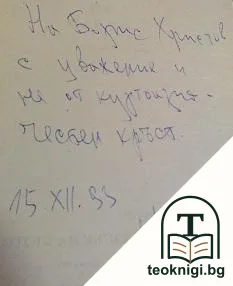 На Борис Христов
с уважение и
не от куртоазия -
честен кръст.
15 XII. 93
T
teoknigi.bg